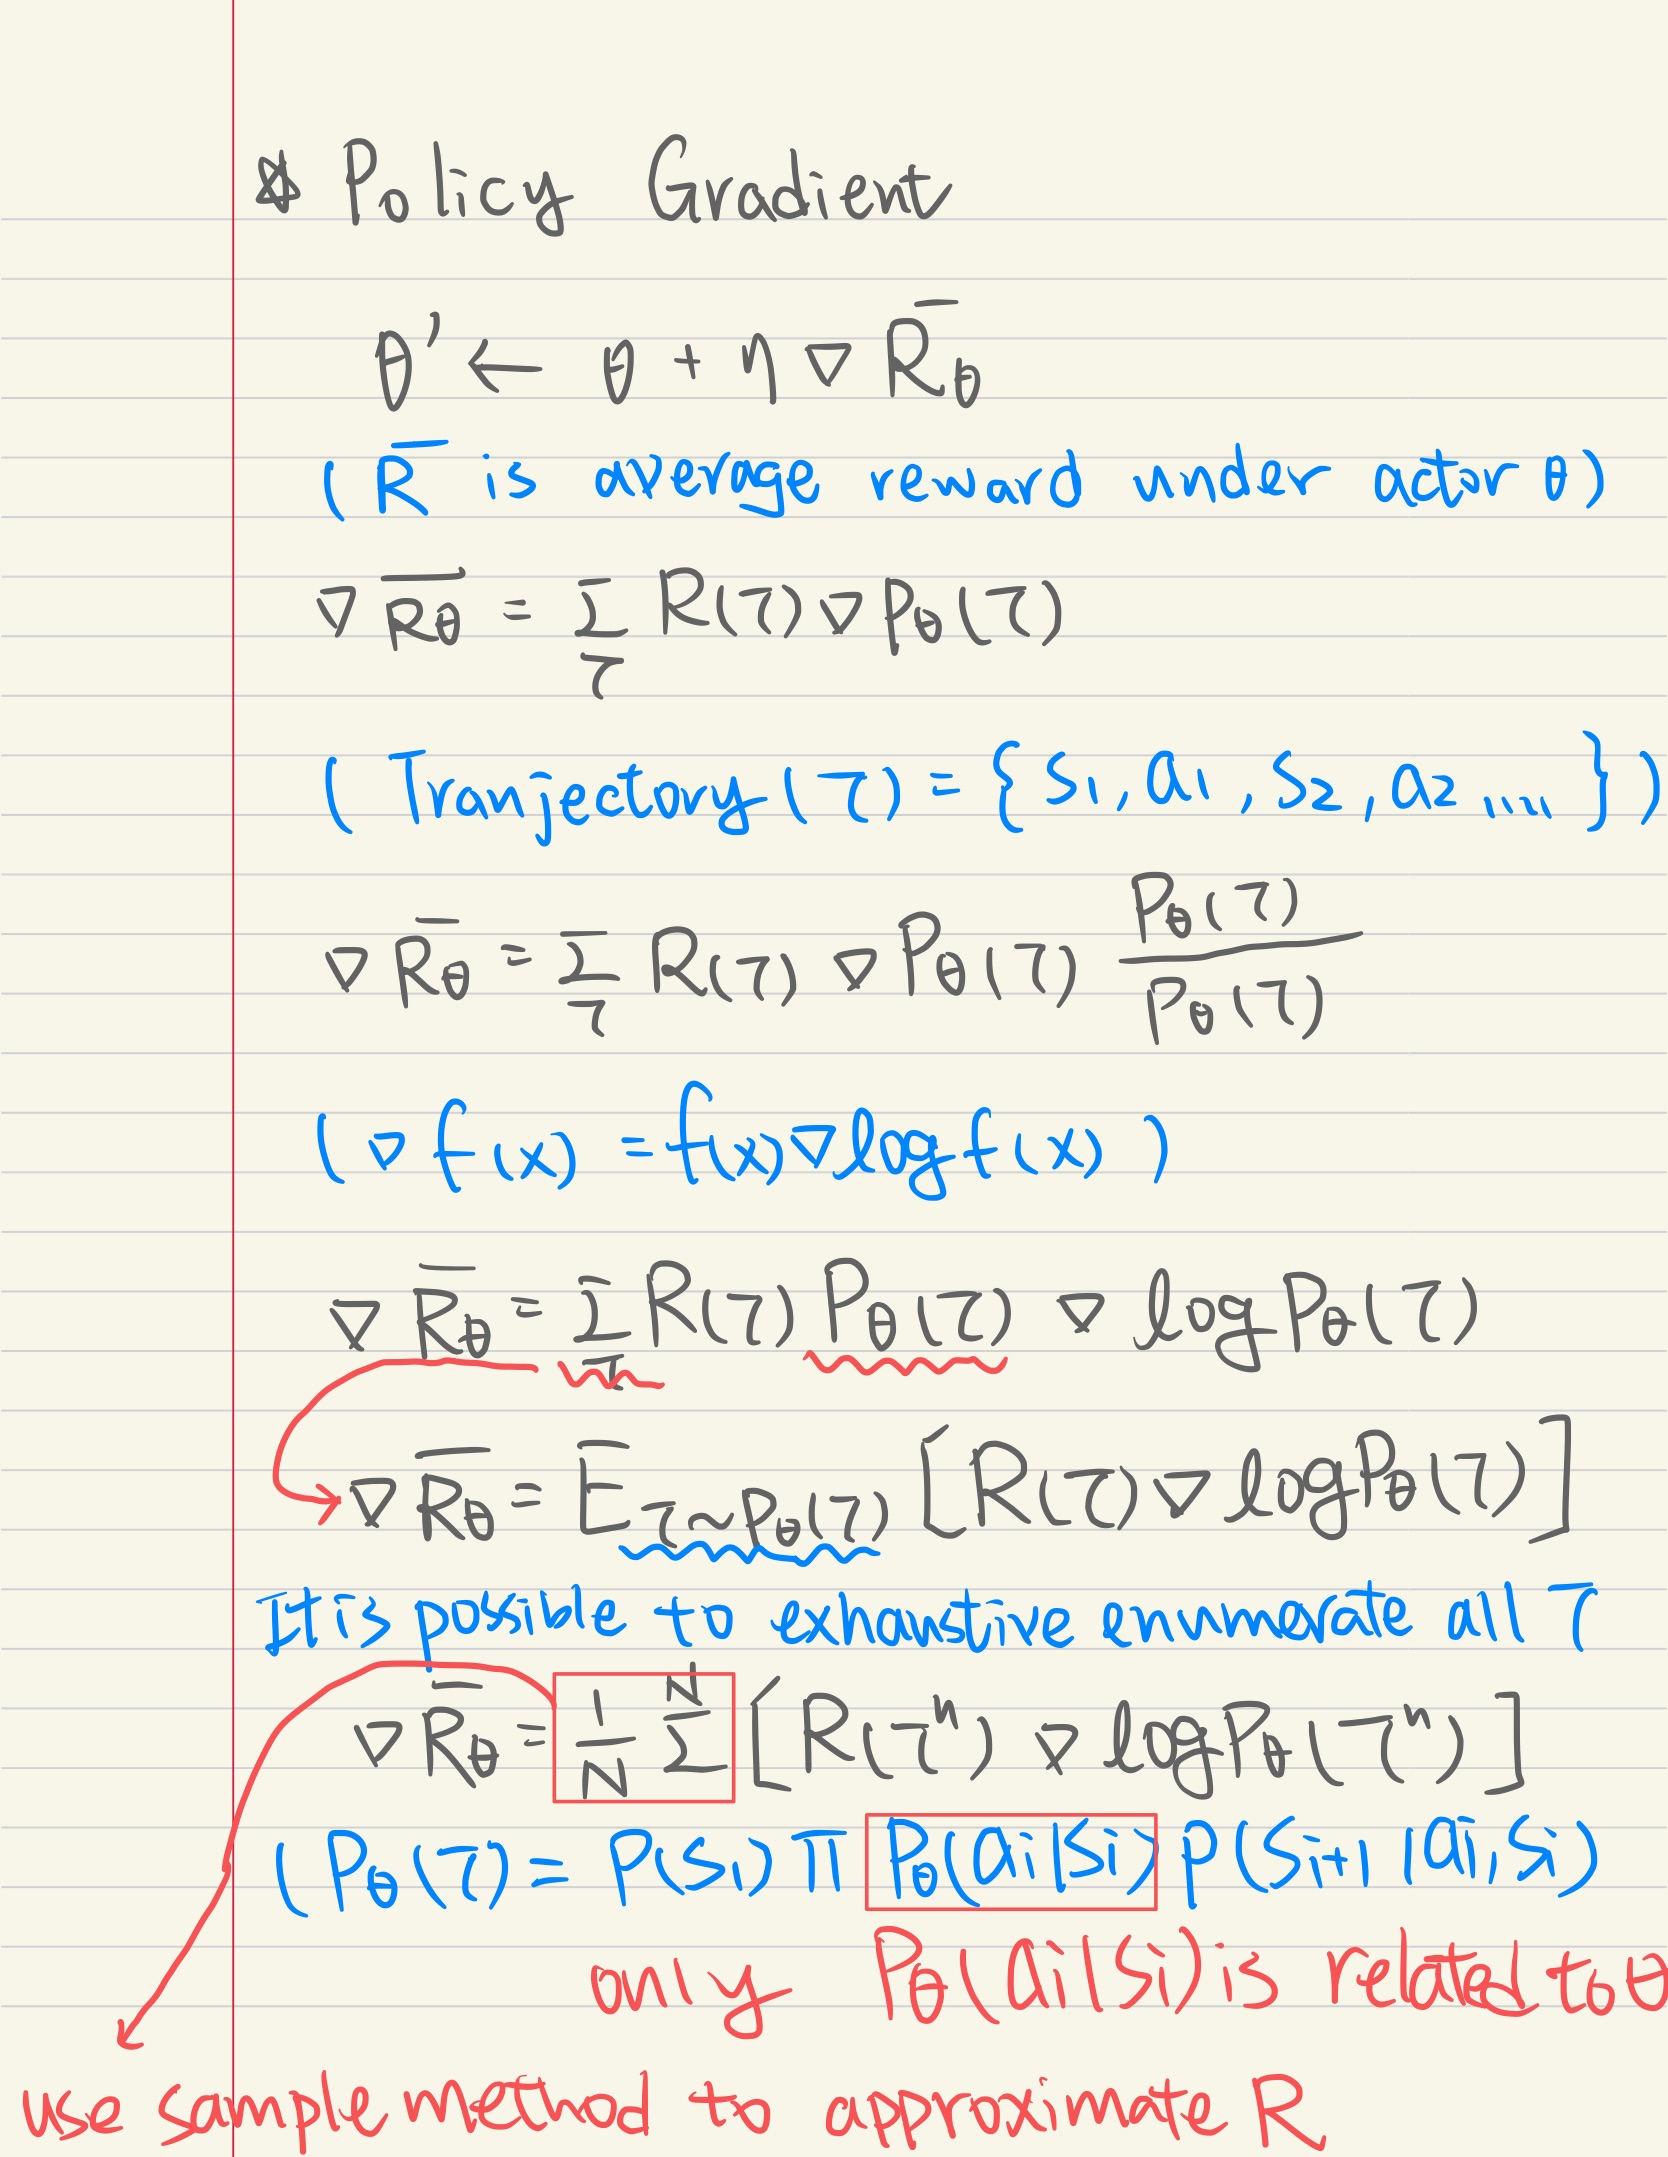 ☆ Policy Gradient
θ' ← θ + η ∇ R̄θ
( R̄ is average reward under actor θ)
∇ R̄θ = Σ_τ R(τ) ∇ Pθ(τ)
( Tranjectory (τ) = { S1, a1, S2, a2 ,.... } )
∇ R̄θ = Σ_τ R(τ) ∇ Pθ(τ) Pθ(τ) / Pθ(τ)
( ∇ f(x) = f(x) ∇ log f(x) )
∇ R̄θ = Σ_τ R(τ) Pθ(τ) ∇ log Pθ(τ)
∇ R̄θ = E_τ~Pθ(τ) [ R(τ) ∇ log Pθ(τ) ]
It is possible to exhaustive enumerate all τ
∇ R̄θ = 1/N Σ^N [ R(τ^n) ∇ log Pθ(τ^n) ]
( Pθ(τ) = P(S1) Π Pθ(ai|Si) P(Si+1 | ai, Si)
only Pθ(ai|Si) is related to θ
use sample method to approximate R